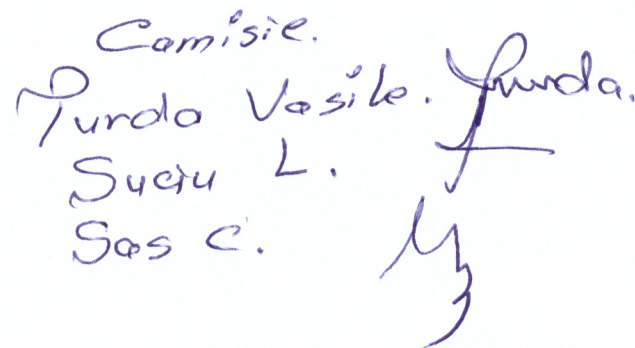 Comisie.
Turda Vasile. Turda.
Suciu L.
Sas C.